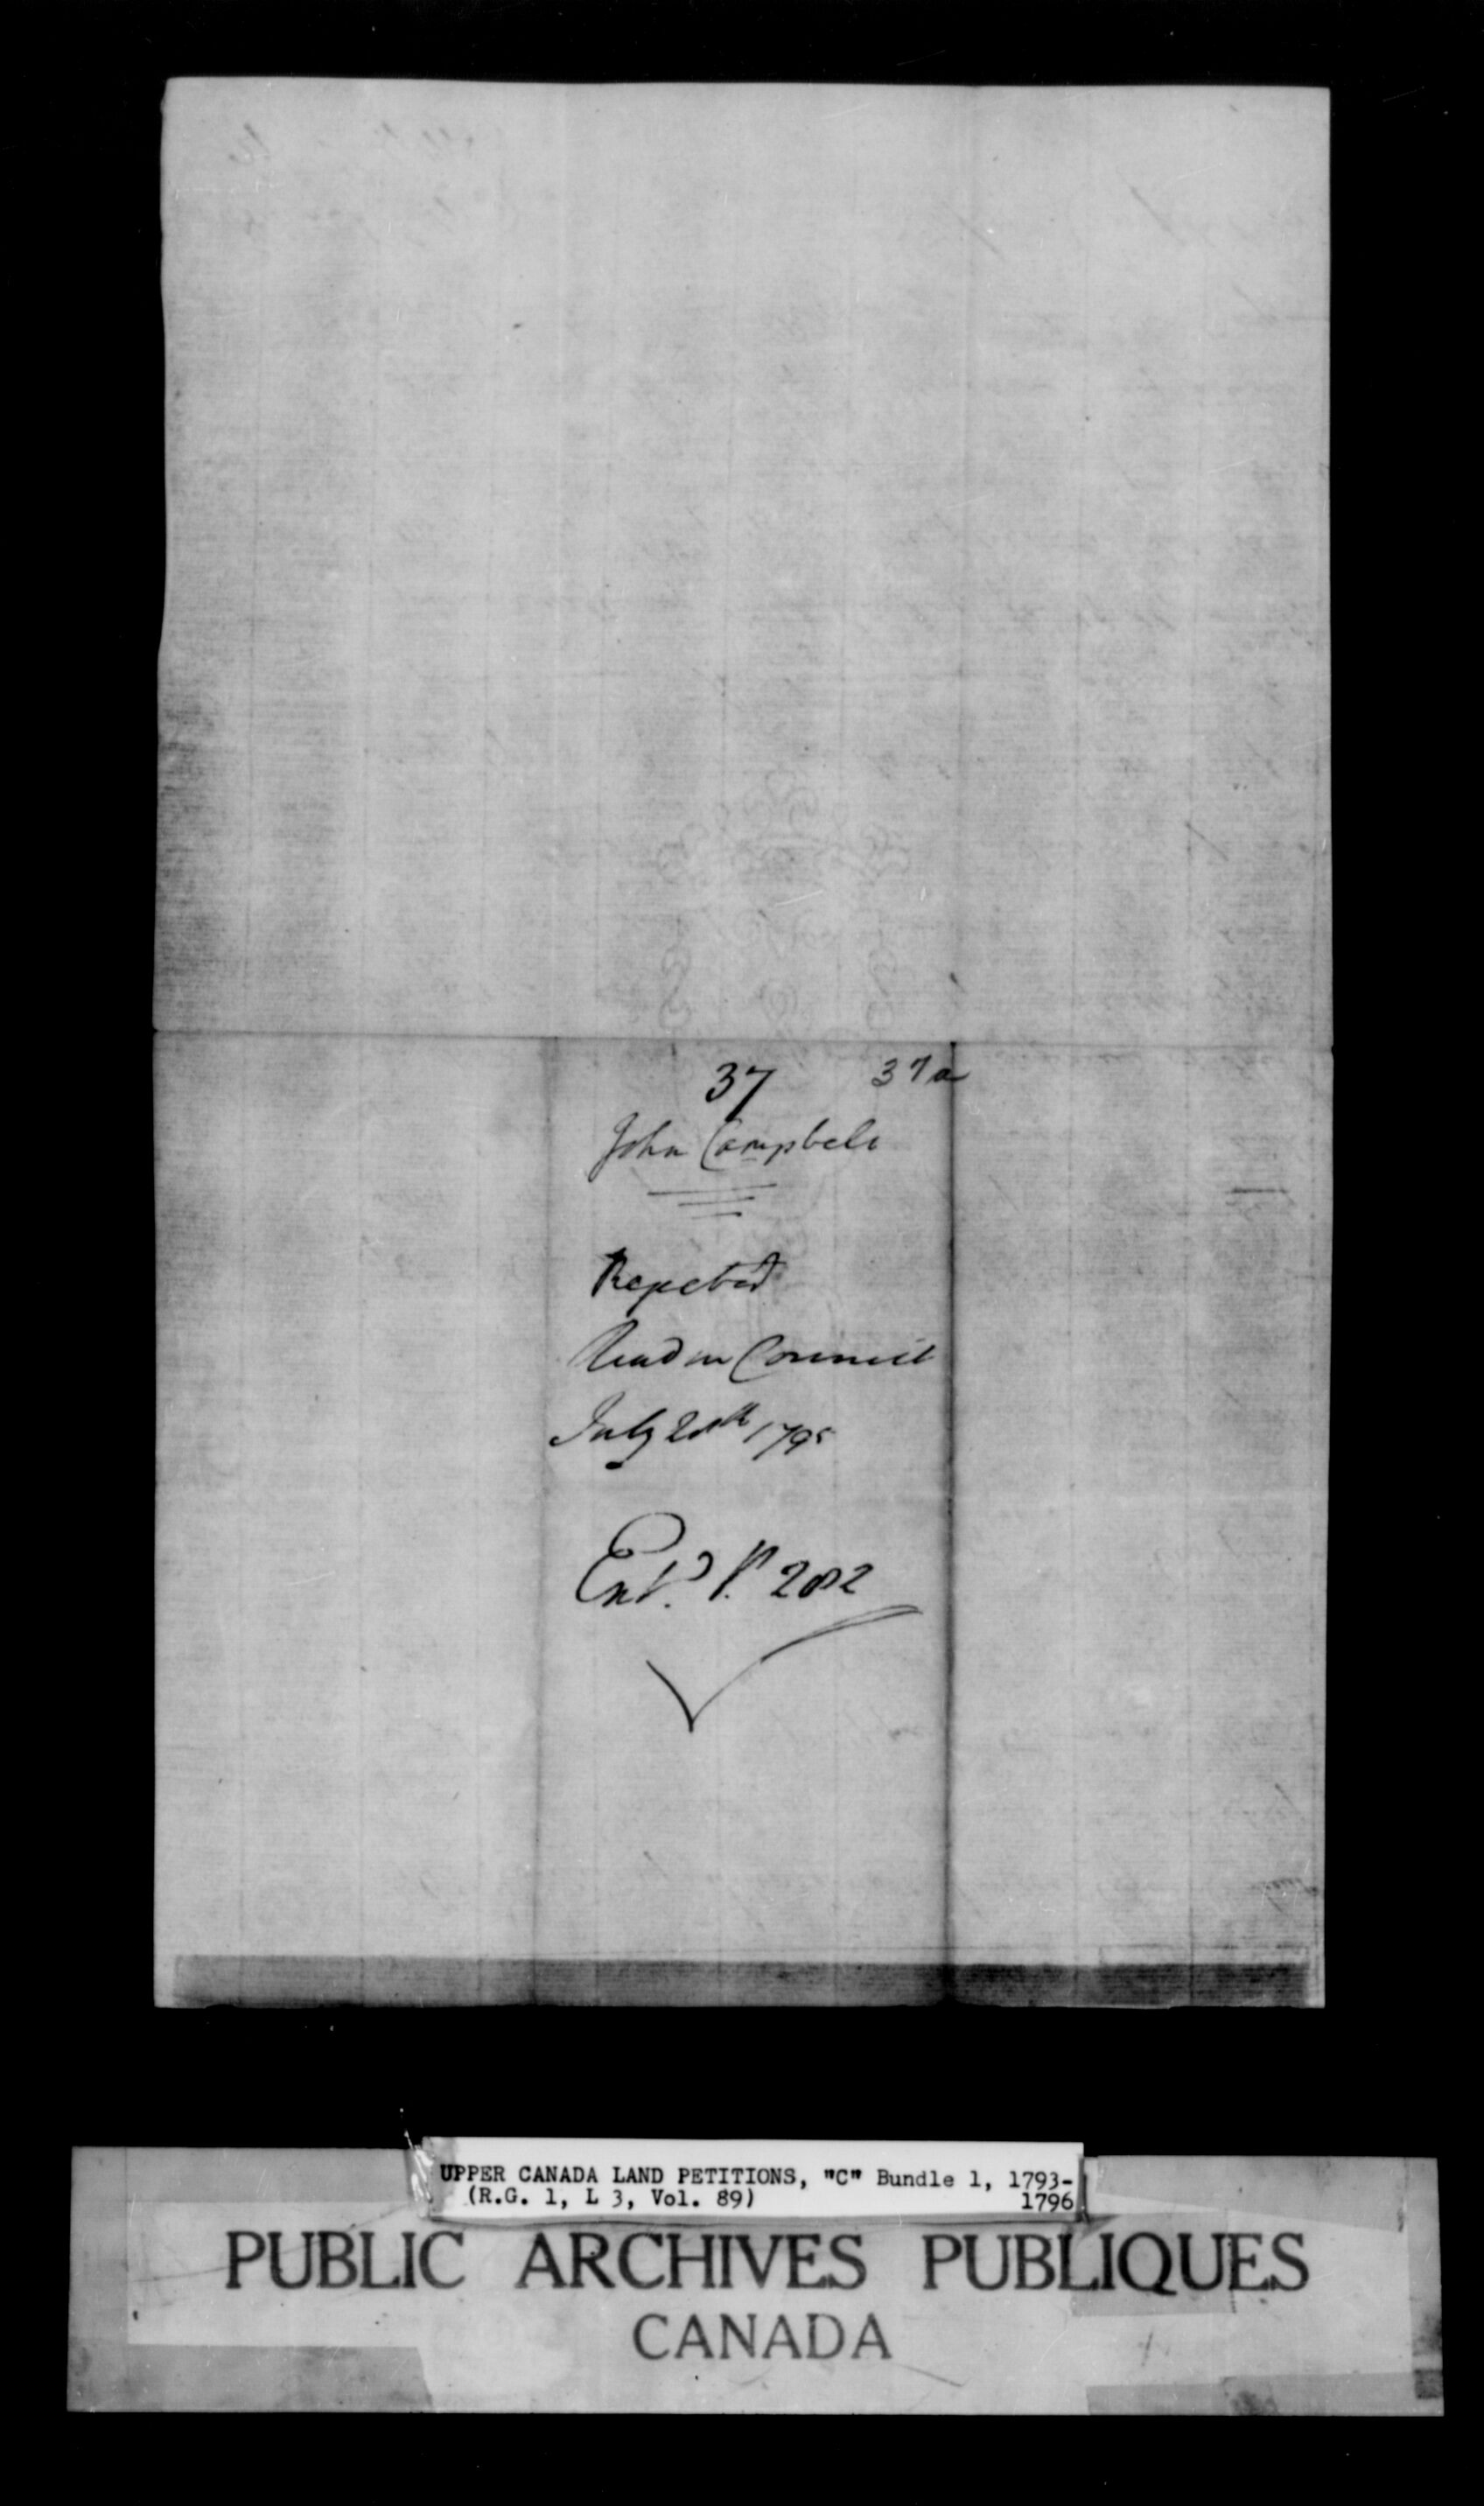 37 37a
John Campbell
Rejected
Read in Council
July 20th 1795
Entd. P. 202
UPPER CANADA LAND PETITIONS, "C" Bundle 1, 1793-
(R.G. 1, L 3, Vol. 89) 1796
PUBLIC ARCHIVES PUBLIQUES
CANADA